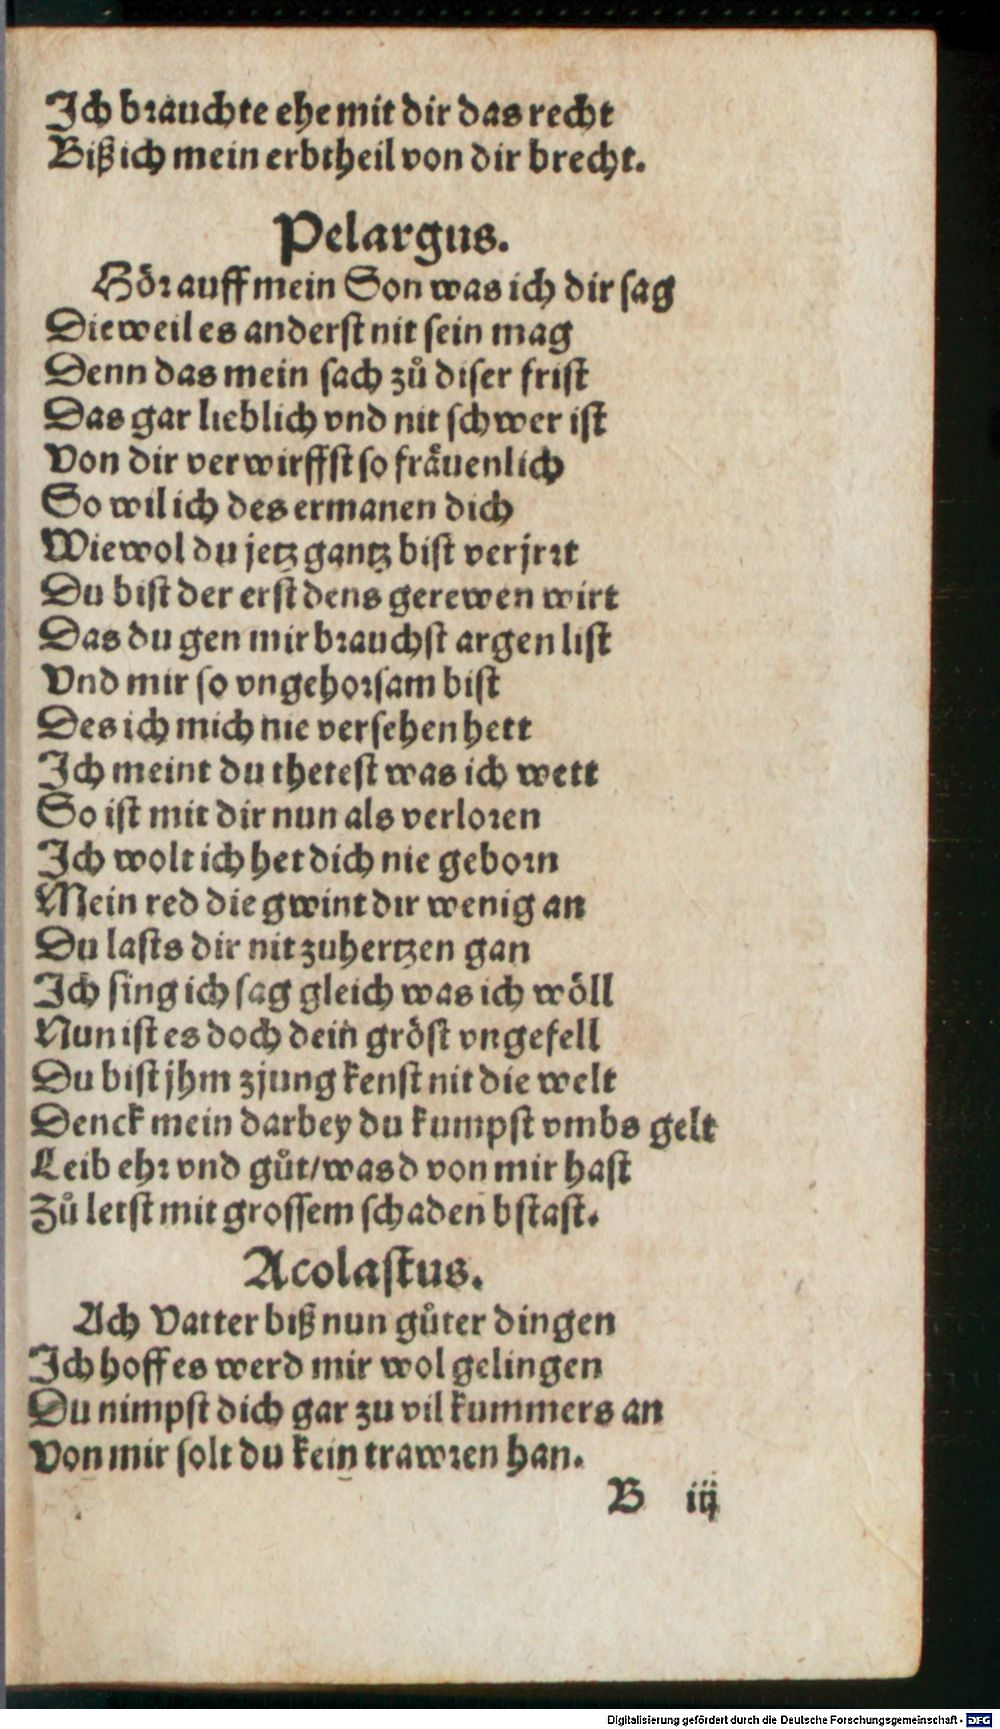 Ich brauchte ehe mit dir das recht
Biß ich mein erbtheil von dir brecht.
Pelargus.
Hoͤr auff mein Son was ich dir sag
Dieweil es anderst nit sein mag
Denn das mein sach zuͦ diser frist
Das gar lieblich vnd nit schwer ist
Von dir verwirffst so fraͤuenlich
So wil ich des ermanen dich
Wiewol du jetz gantz bist verjrrt
Du bist der erst dens gerewen wirt
Das du gen mir brauchst argen list
Vnd mir so vngehorsam bist
Des ich mich nie versehen hett
Ich meint du thetest was ich wett
So ist mit dir nun als verloren
Ich wolt ich het dich nie geborn
Mein red die gwint dir wenig an
Du lasts dir nit zuhertzen gan
Ich sing ich sag gleich was ich woͤll
Nun ist es doch dein groͤst vngefell
Du bist jhm zjung kenst nit die welt
Denck mein darbey du kumpst vmbs gelt
Leib ehr vnd guͦt/was d von mir hast
Zuͦ letst mit grossem schaden bstast.
Acolastus.
Ach Vatter biß nun guͦter dingen
Ich hoff es werd mir wol gelingen
Du nimpst dich gar zu vil kummers an
Von mir solt du kein trawren han.
B iij
Digitalisierung gefördert durch die Deutsche Forschungsgemeinschaft - DFG